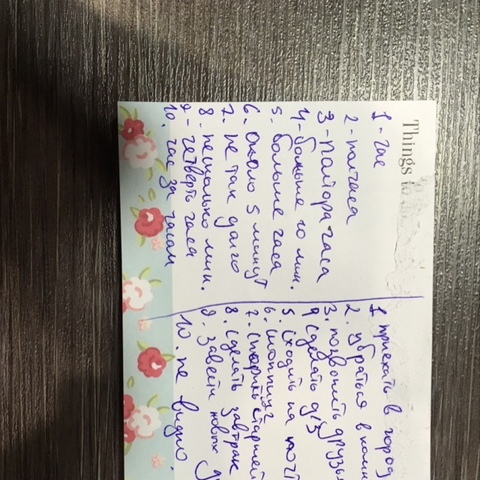 Things to
1 - час
2 - полчаса
3 - полтора часа
4 - больше 10 мин.
5. больше часа
6. около 5 минут
7. не так долго
8. несколько мин.
9 - четверть часа
10. час за часом
1 приехать в город
2. убраться в комн
3. позвонить друзья
4 сделать д/з
5 сходить на почт
6. шоппинг
7. старшей
8. сделать завтрак
9. завести новых
10. не видно.